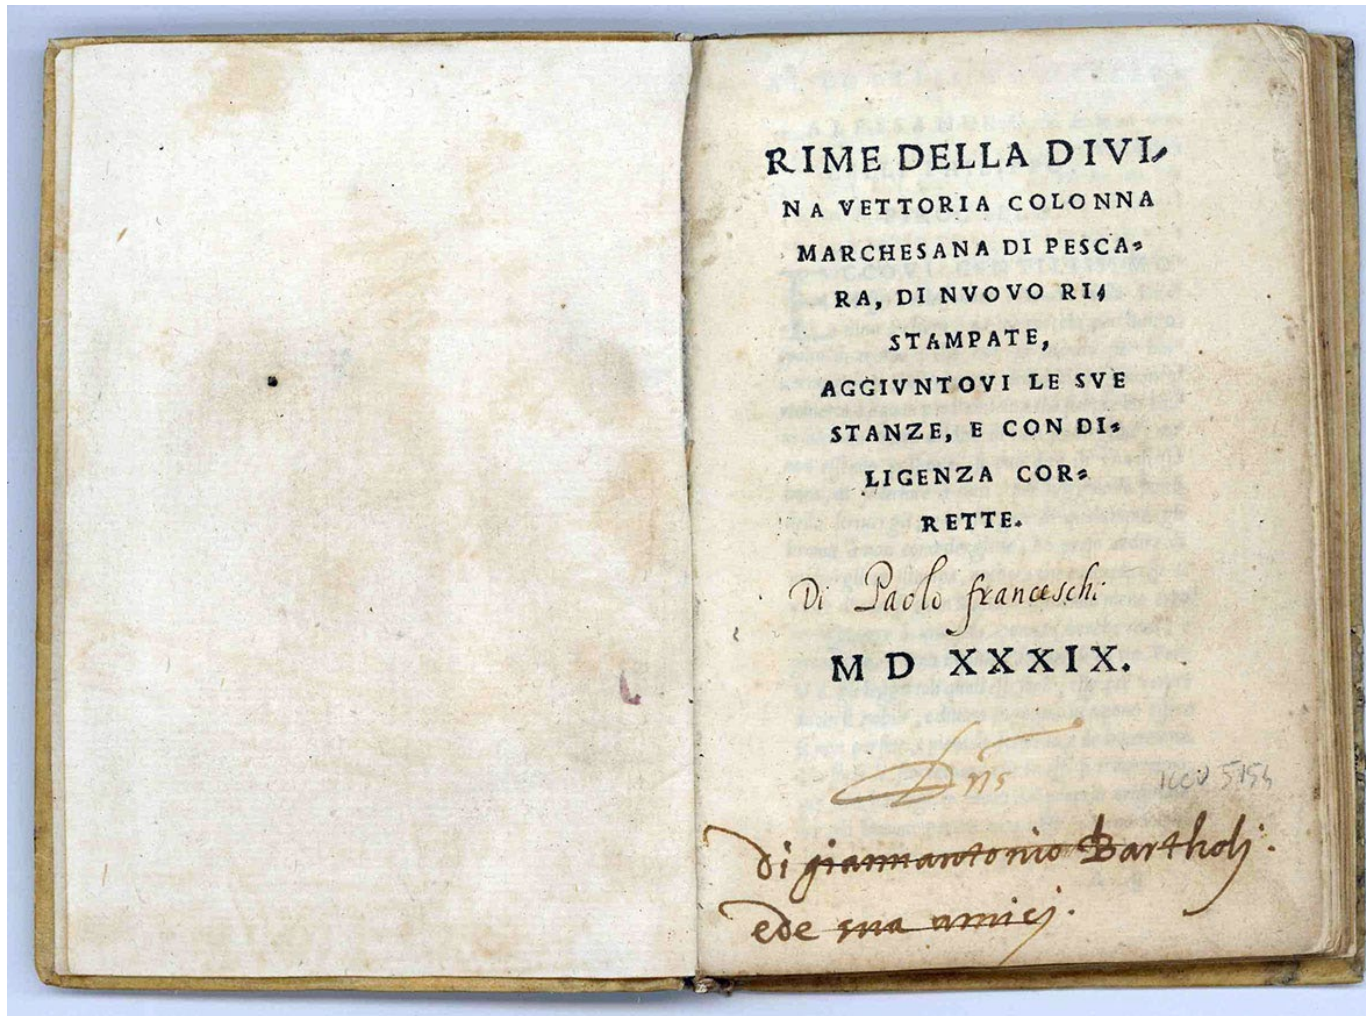 RIME DELLA DIVI-
NA VETTORIA COLONNA
MARCHESANA DI PESCA-
RA, DI NVOVO RI-
STAMPATE,
AGGIVNTOVI LE SVE
STANZE, E CON DI-
LIGENZA COR-
RETTE.
Di Paolo franceschi
M D XXXIX.
Dns
di giannantonio Bartholj.
ede sua amicj.